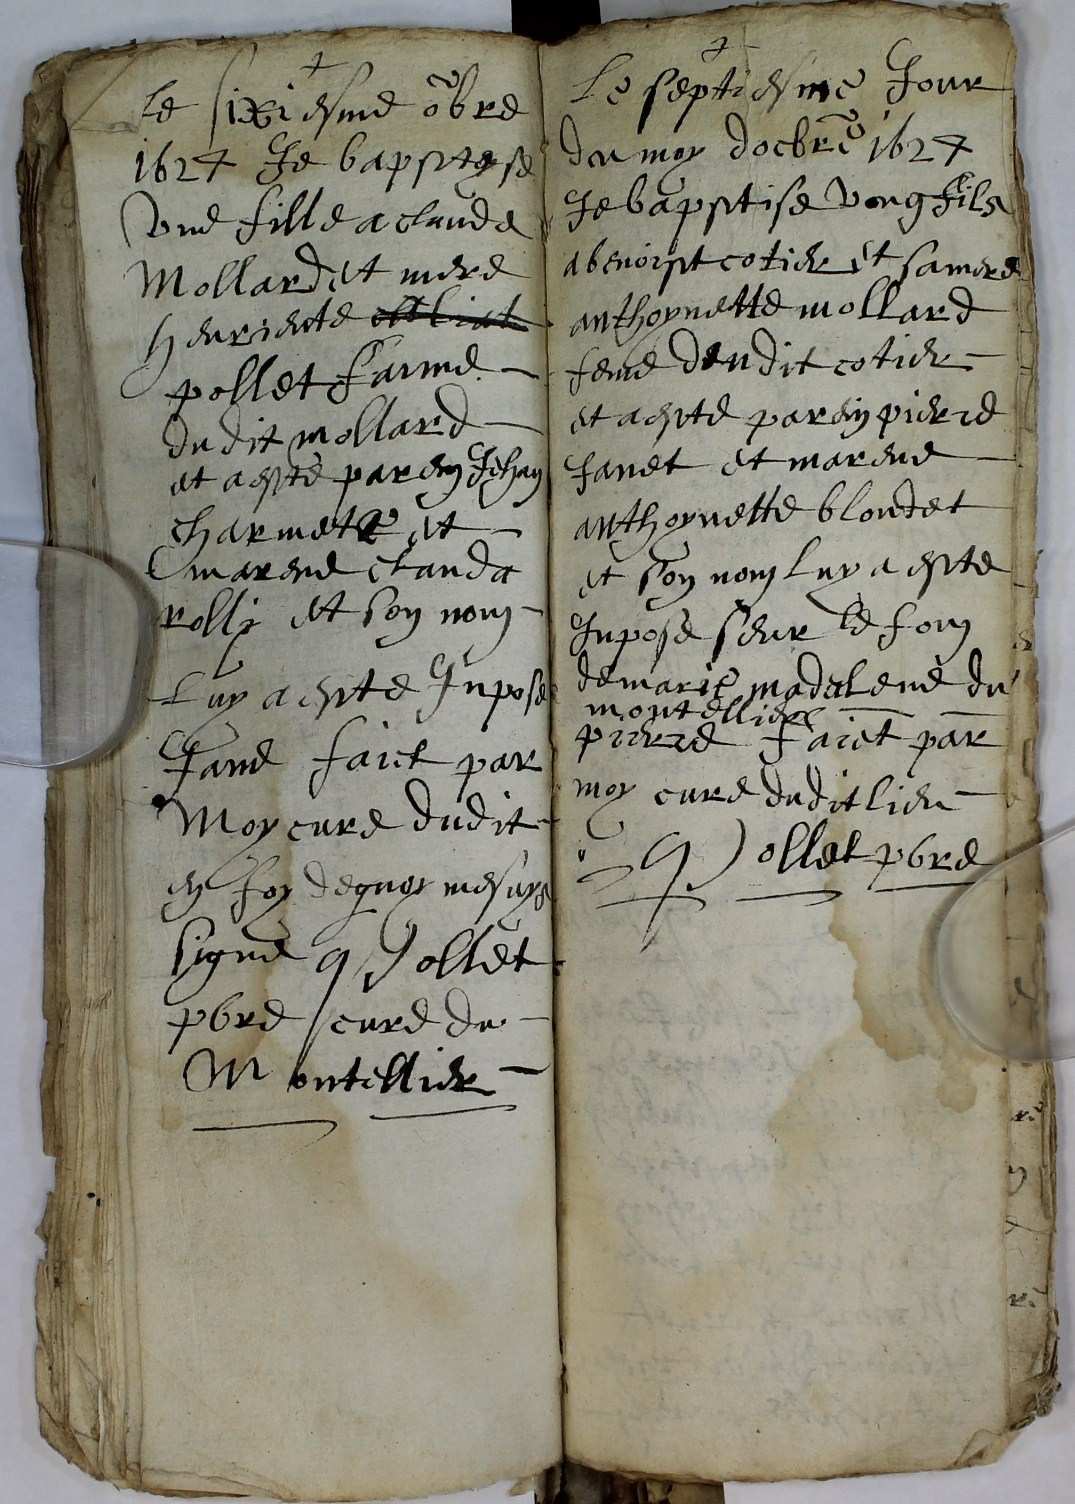 le sixiesme obre
1624 Je bapstese
Une fille a clauda
Mollard et mere
henrieste
pollet famme
dudit mollard
et a este parein Jehan
Charmett et
marene clauda
rolly et son nom
luy a este Inpose
Jane faict par
Moy cure dudit
en foy de quoy me suys
signe Pollet
pbre cure du
Montellier
Le septiesme Jour
du moy docbre 1624
Je bapstise Ung fils
a benoist cotier et sa mere
anthoynette mollard
feme dudit cotier
et a este parein pierre
Janet et marene
anthoynette blondet
et son nom luy a este
Inpose seur le fom
de marie madelene du
montellier
pierre faict par
moy cure dudit lieu
Pollet pbre